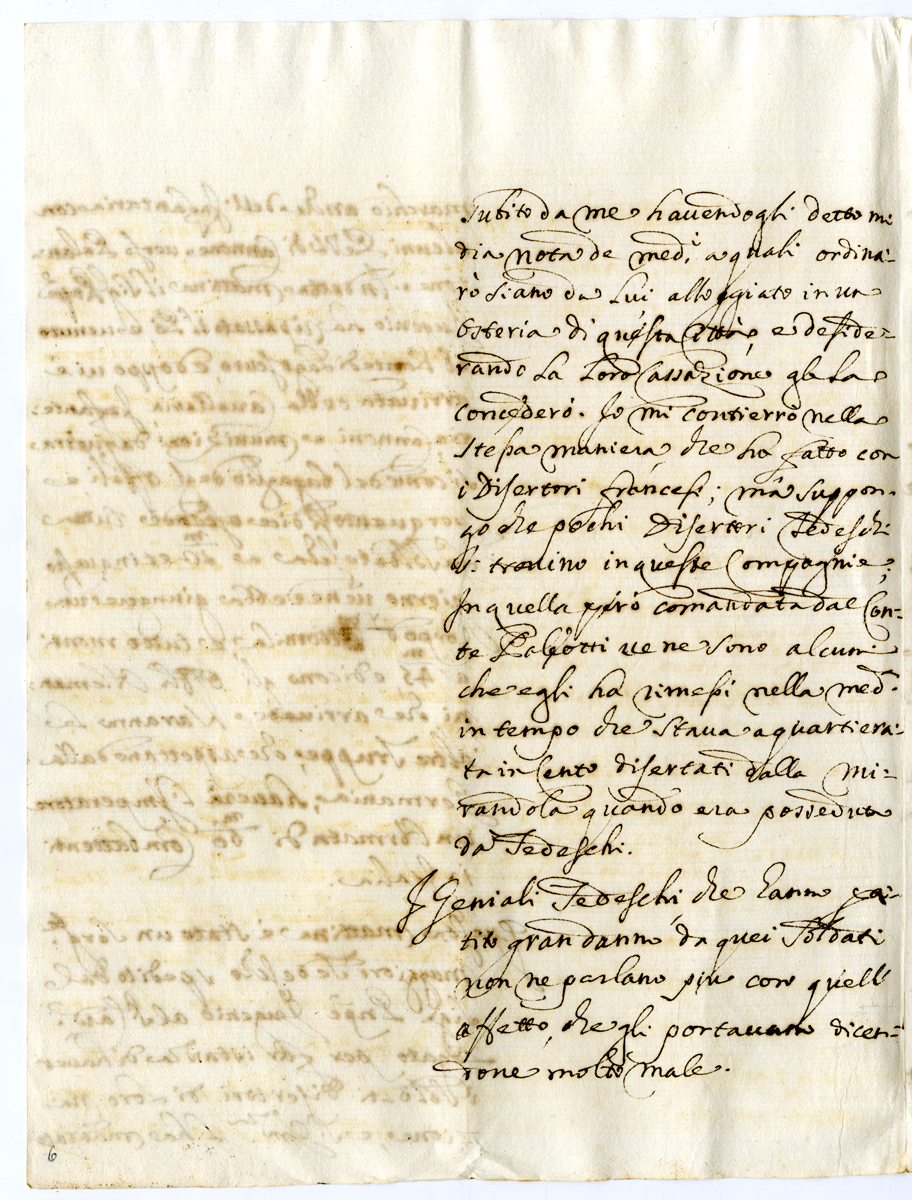 Subito da me havendogli detto mi
dia nota de med.i, a quali ordina-
rò siano da Lui alloggiate in un
Osteria di questa Città, e deside-
rando La Loro Cassazione gle La
concederò. Io mi contierrò nella
stessa maniera, che ho fatto con
i Disertori francesi; mà suppon-
go che pochi Disertori Tedeschi
si trovino in queste Compagnie;
In quella però comandata dal Con-
te Paleotti ve ne sono alcuni
che egli ha rimessi nella med.
in tempo che stava aquartiera-
ta in Cento disertati dalla Mi-
randola quando era posseduta
da Tedeschi.
I Geniali Tedeschi che hanno pa-
tito gran danno da quei Soldati
non ne parlano piu con quell
affetto, che gli portavano dicen-
done molto male.
6